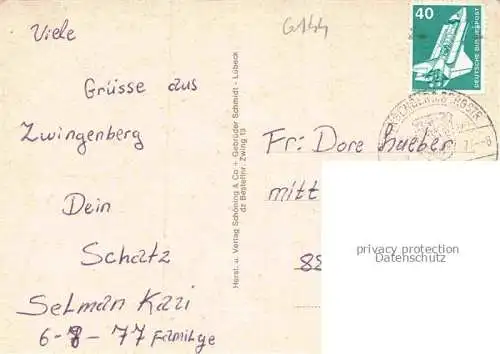 Viele
Grüsse aus
Zwingenberg
Dein
Schatz
Selman Kazi
6-8-77 Familge
G144
Fr: Dore Lueber
mitt
Herst. u. Verlag Schöning & Co + Gebrüder Schmidt - Lübeck
dz Bestellnr. Zwing 13
40
DEUTSCHE BUNDESPOST
privacy protection
Datenschutz